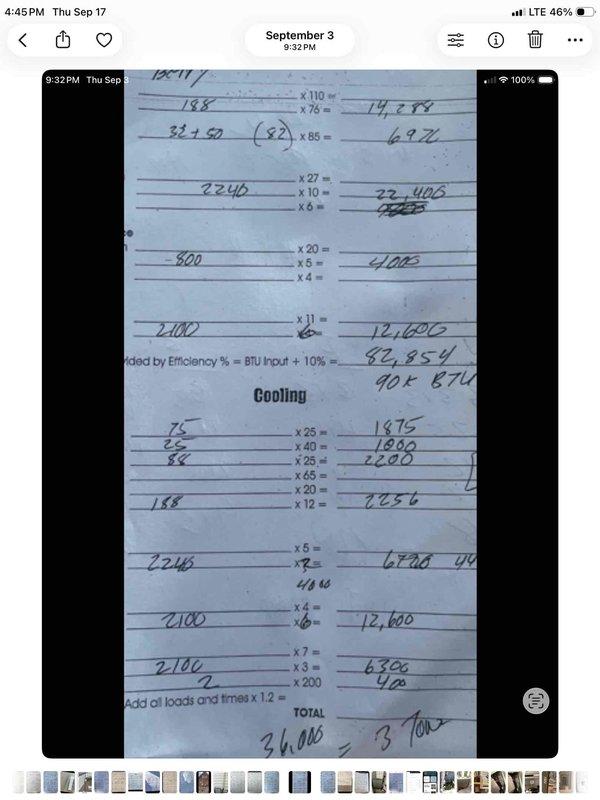 4:45 PM Thu Sep 17 LTE 46%
September 3
9:32 PM
9:32 PM Thu Sep 3 100%
x 110 =
188 x 76 = 14,288
32 + 50 (82) x 85 =
x 27 =
2240 x 10 = 22,400
x 6 =
-800 x 20 =
x 5 = 4000
x 4 =
x 11 =
2100 x 6 = 12,600
vided by Efficiency % = BTU Input + 10% = 82,854
90K BTU
Cooling
75 x 25 = 1875
25 x 40 = 1000
88 x 25 = 2200
x 65 =
x 20 =
188 x 12 = 2256
x 5 =
2240 6720 44
4000
x 4 =
2100 x 6 = 12,600
x 7 =
2100 x 3 = 6300
2 x 200 400
Add all loads and times x 1.2 =
TOTAL
36,000 = 3 Tons